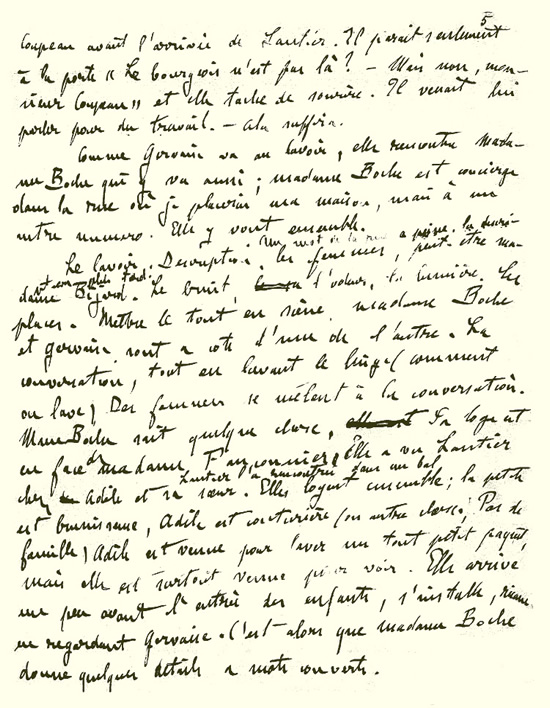 5
Coupeau avant l'arrivée de Lantier. Il paraît seulement
à la porte « Le bourgeois n'est pas là ? — Mais non, mon-
sieur Coupeau » et elle tache de sourire. Il venait lui
parler pour du travail. — Cela suffira.
Comme Gervaise va au lavoir, elle rencontre mada-
me Boche qui y va aussi ; madame Boche est concierge
dans la rue où je placerai ma maison, mais à un
autre numéro. Elle y vont ensemble.
Un mot de la rue a peine. la descri-
Le lavoir. Description, les femmes, peut-être ma-
plus tard.
dame Bijard. Le bruit l'odeur, la lumière. Les
places. Mettre le tout en scène. madame Boche
et Gervaise sont a coté d'une de l'autre. La
conversation, tout en lavant le linge (comment
on lave) Des femmes se mêlent à la conversation.
Mame Boche sait quelque chose, Ça loge est
en face de madame Fauconnier. Elle a vu Lantier
Lantier l'a rencontrée dans un bal
chez Adèle et sa sœur. Elles logent ensemble ; la petite
est brunisseuse, Adèle est couturière (ou autre chose) Pas de
famille) Adèle est venue pour laver un tout petit paquet,
mais elle est surtout venue pour voir. Elle arrive
un peu avant l'entrée des enfants, s'installe, ricane
en regardant Gervaise. C'est alors que madame Boche
donne quelques détails a mots couverts.